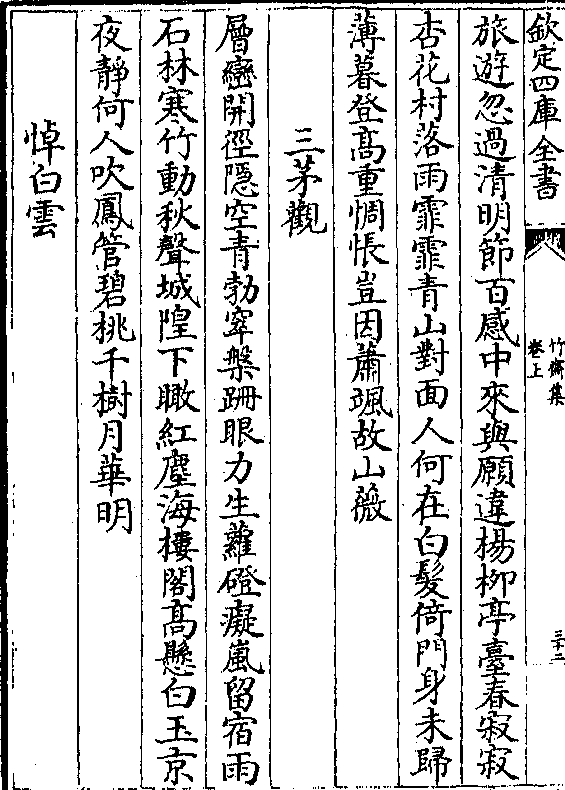 欽定四庫全書
竹齋集
卷上
三十二
旅遊忽過清明節百感中來與願違楊柳亭臺春寂寂
杏花村落雨霏霏青山對面人何在白髮倚門身未歸
薄暮登高重惆悵豈因蕭颯故山薇
三茅觀
層巒開徑隱空青勃窣槃跚眼力生蘿磴凝嵐留宿雨
石林寒竹動秋聲城隍下瞰紅塵海樓閣高懸白玉京
夜靜何人吹鳳管碧桃千樹月華明
悼白雲